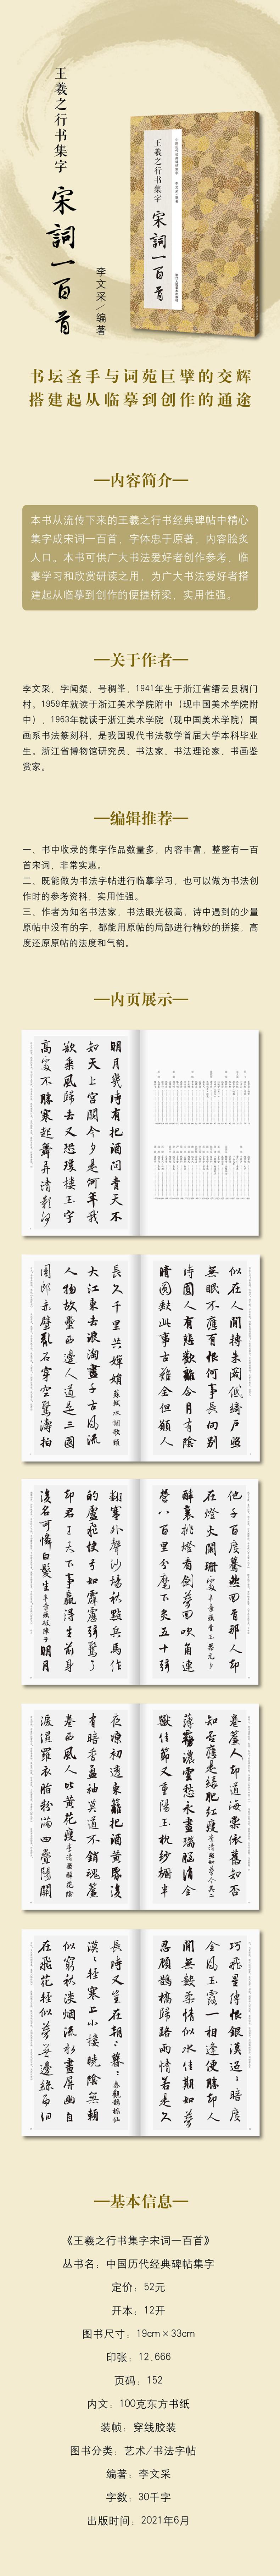 王羲之行书集字
宋詞一百首
李文采／编著
中国历代经典碑帖集字
李文采/编著
王羲之行书集字
宋詞一百首
书坛圣手与词苑巨擘的交辉
搭建起从临摹到创作的通途
—内容简介—
本书从流传下来的王羲之行书经典碑帖中精心
集字成宋词一百首，字体忠于原著，内容脍炙
人口。本书可供广大书法爱好者创作参考、临
摹学习和欣赏研读之用，为广大书法爱好者搭
建起从临摹到创作的便捷桥梁，实用性强。
—关于作者—
李文采，字闻桀，号稠峯，1941年生于浙江省缙云县稠门
村。1959年就读于浙江美术学院附中（现中国美术学院附
中），1963年就读于浙江美术学院（现中国美术学院）国
画系书法篆刻科，是我国现代书法教学首届大学本科毕业
生。浙江省博物馆研究员，书法家、书法理论家、书画鉴
赏家。
—编辑推荐—
一、书中收录的集字作品数量多，内容丰富，整整有一百
首宋词，非常实惠。
二、既能做为书法字帖进行临摹学习，也可以做为书法创
作时的参考资料，实用性强。
三、作者为知名书法家，书法眼光极高，诗中遇到的少量
原帖中没有的字，都能用原帖的局部进行精妙的拼接，高
度还原原帖的法度和气韵。
—内页展示—
明月幾時有把酒问青天不
知天上宫闕今夕是何年我
欲乘風歸去又恐瓊樓玉宇
高處不勝寒起舞弄清影何
似在人間轉朱閣低綺戶照
無眠不應有恨何事長向别
時圓人有悲歡離合月有陰
晴圓缺此事古難全但願人
長久千里共嬋娟 蘇軾水調歌頭
大江東去浪淘盡千古風流
人物故壘西邊人道是三國
周郎赤壁亂石穿空驚濤拍
他千百度驀然回首那人却
在燈火闌珊處 辛棄疾青玉案元夕
醉裏挑燈看劍夢回吹角連
營八百里分麾下炙五十弦
翻塞外聲沙場秋點兵馬作
的盧飛快弓如霹靂弦驚了
却君王天下事贏得生前身
後名可憐白髮生 辛棄疾破陣子 明月
卷簾人却道海棠依舊知否
知否應是綠肥紅瘦 李清照如夢令其二
薄霧濃雲愁永晝瑞腦消金
獸佳節又重陽玉枕紗櫥半
夜凉初透東籬把酒黄昏後
有暗香盈袖莫道不銷魂簾
卷西風人比黄花瘦 李清照醉花陰
淚濕羅衣脂粉滿四疊陽關
巧飛星傳恨銀漢迢迢暗度
金風玉露一相逢便勝却人
間無數柔情似水佳期如夢
忍顧鵲橋歸路兩情若是久
長時又豈在朝朝暮暮 秦觀鵲橋仙
漠漠輕寒上小樓曉陰無賴
似窮秋淡烟流水畫屏幽自
在飛花輕似夢無邊絲雨細
—基本信息—
《王羲之行书集字宋词一百首》
丛书名：中国历代经典碑帖集字
定价：52元
开本：12开
图书尺寸：19cm×33cm
印张：12.666
页码：152
内文：100克东方书纸
装帧：穿线胶装
图书分类：艺术/书法字帖
编著：李文采
字数：30千字
出版时间：2021年6月